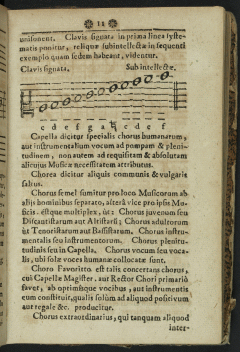 11
unisonent. Clavis signata in prima linea syste-
matis ponitur, reliquæ subintellectæ in sequenti
exemplo quam sedem habeant, videntur.
Clavis signata. Subintellectæ.
c d e f g a h c d e f
Capella dicitur specialis chorus humanarum,
aut instrumentalium vocum ad pompam & pleni-
tudinem, non autem ad requisitam & absolutam
alicujus Musicæ necessitatem attributus.
Chorea dicitur aliquis communis & vulgaris
saltus.
Chorus semel sumitur pro loco Musicorum ab
aliis hominibus separato, altera vice pro ipsis Mu-
sicis. estque multiplex, ut: Chorus juvenum seu
Discantistarum aut Altistarum; Chorus adultorum
ut Tenoristarum aut Bassistarum. Chorus instru-
mentalis seu instrumentorum. Chorus plenitu-
dinis seu in Capella. Chorus vocum seu voca-
lis, ubi solæ voces humanæ collocatæ sunt.
Choro Favorisito est talis concertans chorus,
cui Capellæ Magister, aut Rector Chori primariò
favet, ab optimisque vocibus, aut instrumentis
eum constituit, qualis solùm ad aliquod positivum
aut regale &c. producitur.
Chorus extraordinarius, qui tanquam aliquod
inter-